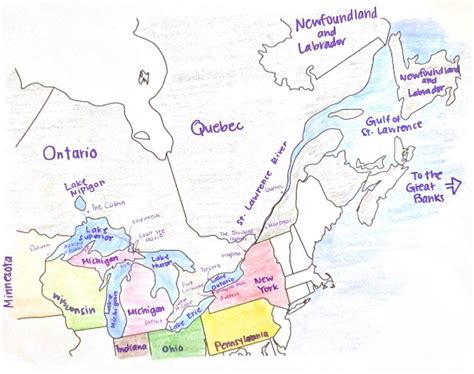 Newfoundland
and
Labrador
Newfoundland
and
Labrador
Gulf of
St. Lawrence
Quebec
Ontario
St. Lawrence River
To the
Great
Banks
Lake
Nipigon
The Cabin
Quebec
Montreal
Lake
Superior
Duluth
Michigan
Lake
Huron
Toronto
Lake
Ontario
Minnesota
Wisconsin
Lake
Michigan
Michigan
Detroit
Lake Erie
Buffalo
New
York
Indiana
Ohio
Pennsylvania